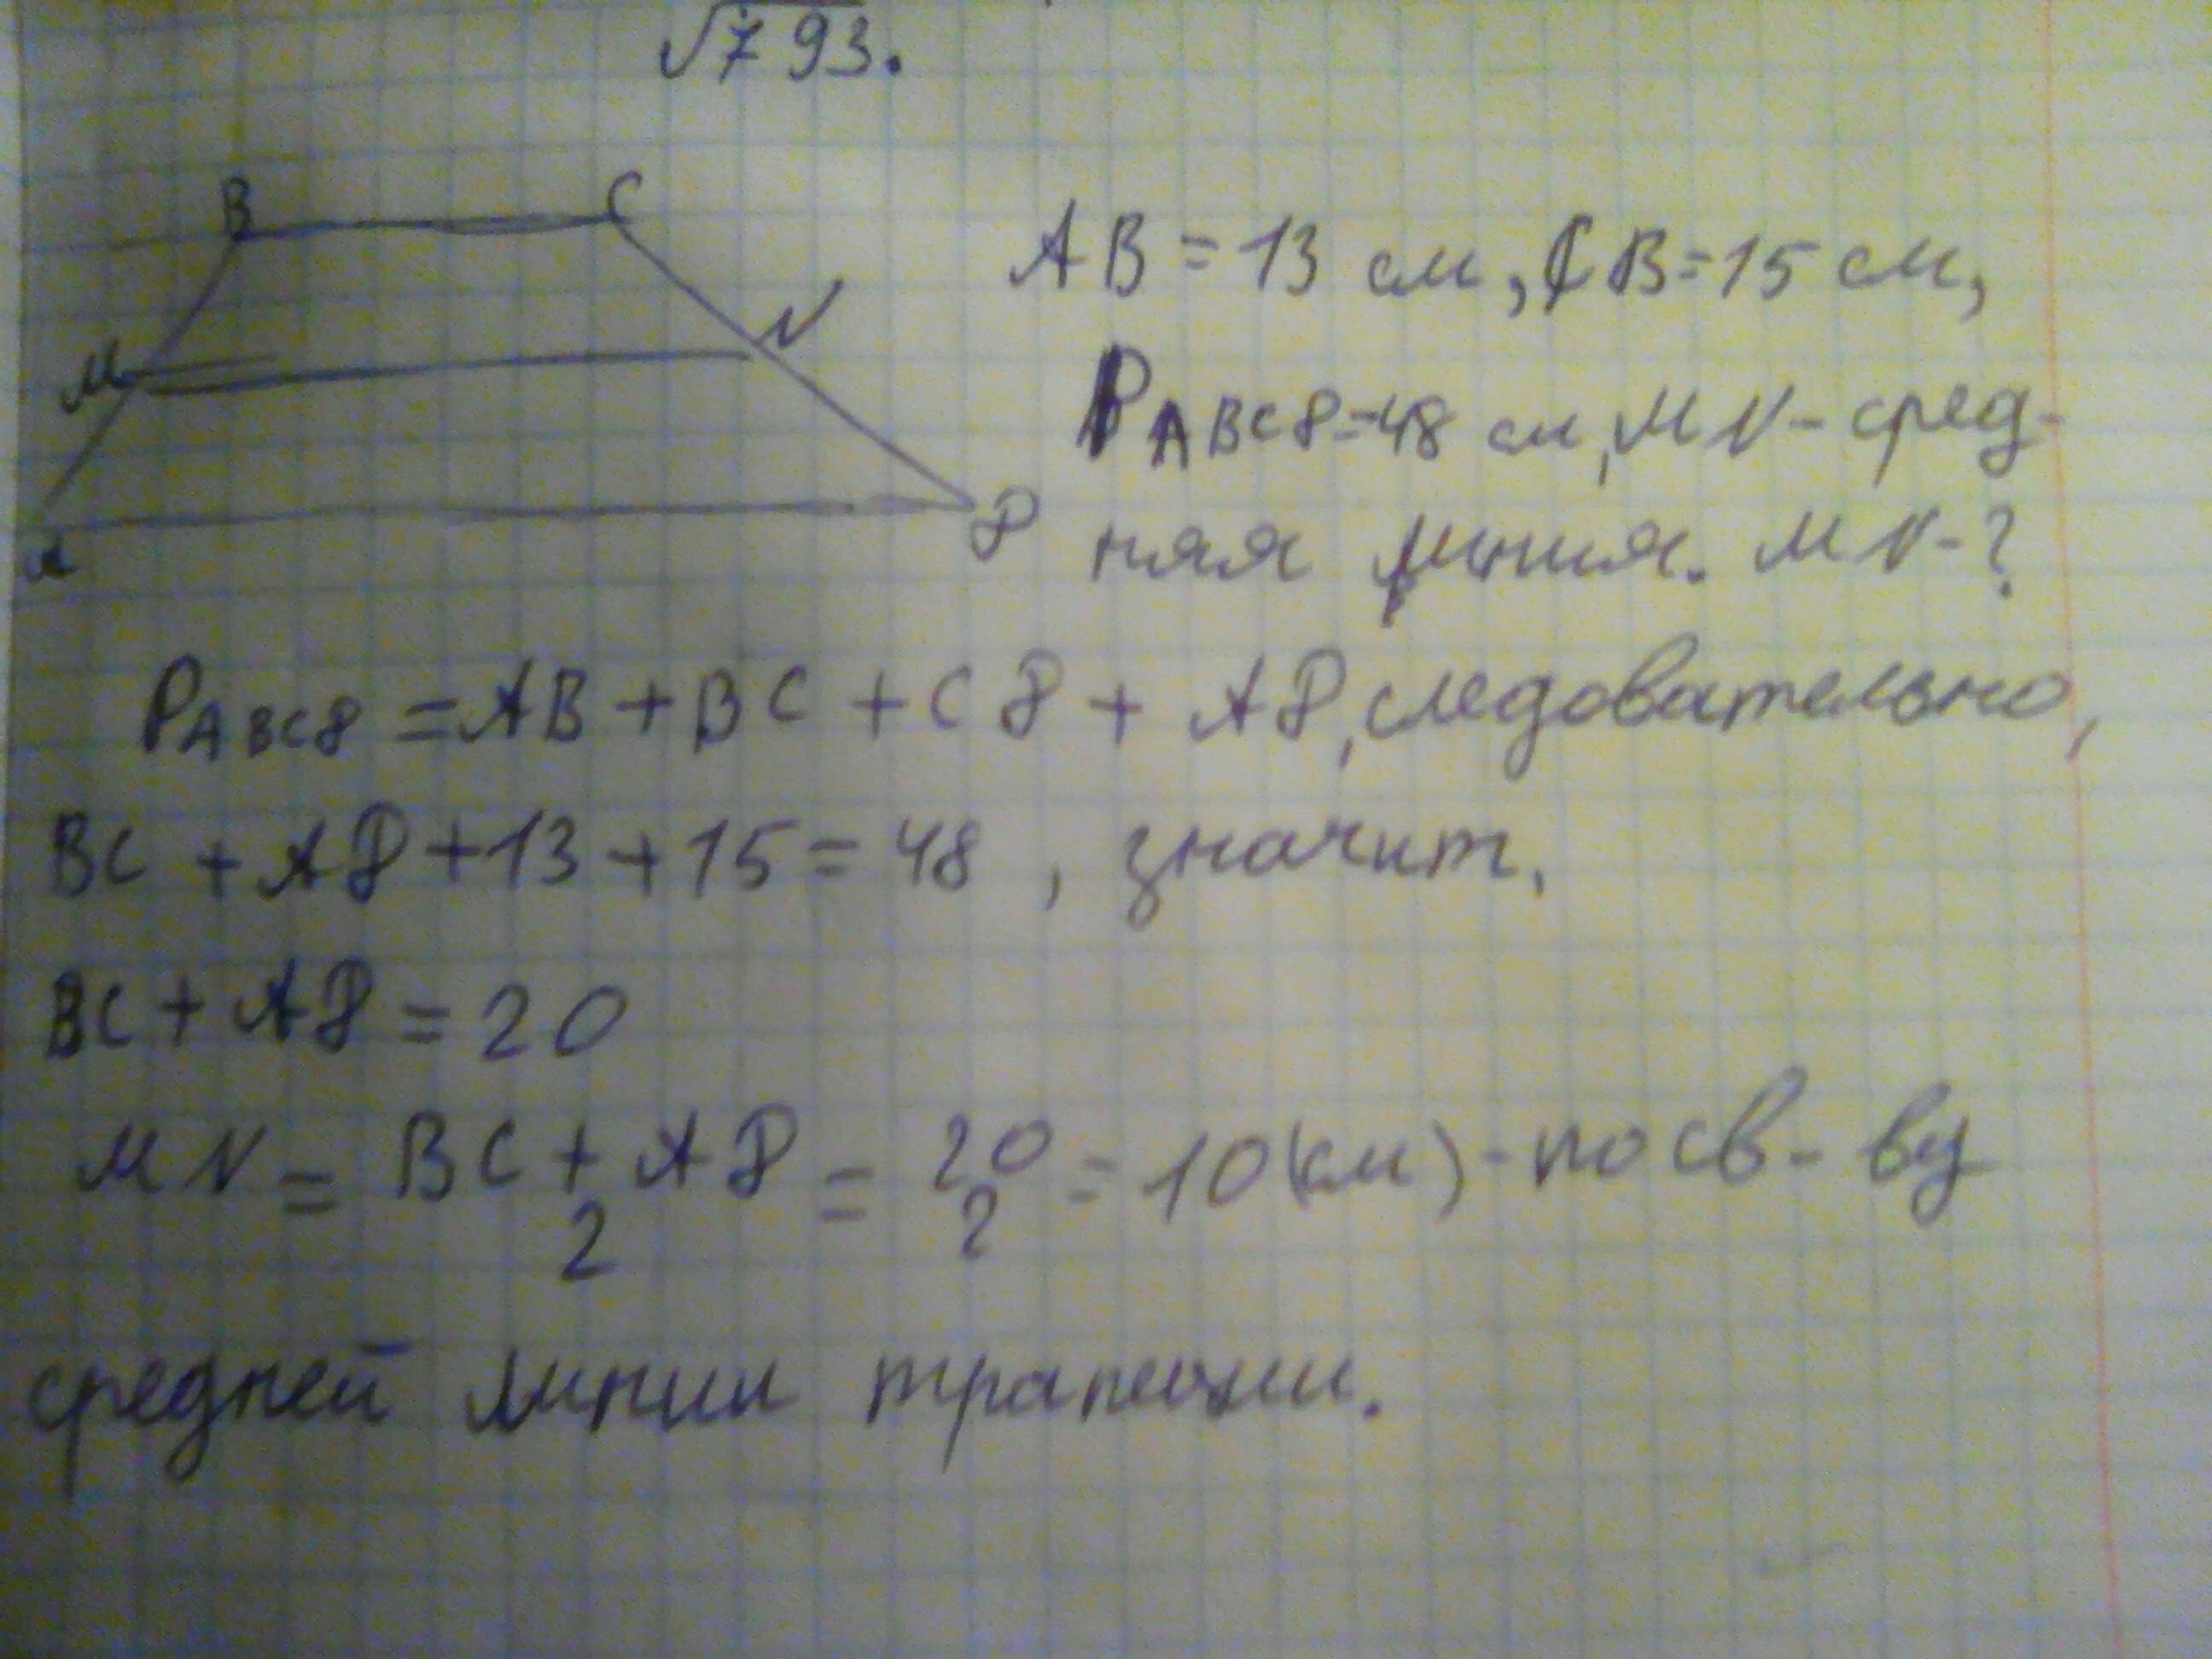 √793.
B C
M N
A D
AB = 13 см, CD = 15 см,
PABCD = 48 см, MN - сред-
няя линия. MN - ?
PABCD = AB + BC + CD + AD, следовательно,
BC + AD + 13 + 15 = 48 , значит,
BC + AD = 20
MN = BC + AD / 2 = 20 / 2 = 10 (см) - по св-ву
средней линии трапеции.